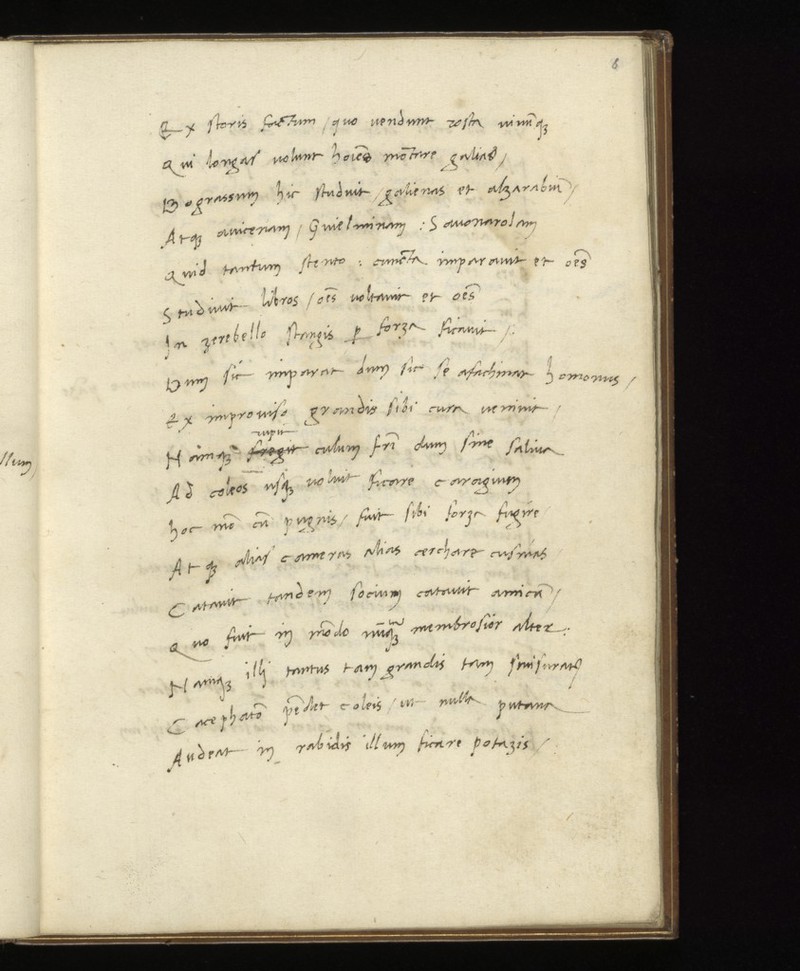 6
Ex storis factum / quo vendunt rosta vinumq3
Qui longas volunt hoiēs mōtare galias /
Bograssum hic studuit / galienas et alzarabiū /
Atq3 avicenam / Guielminam : Savonarolam
Quid tantum stento : cuncta imparavit et oēs
Studivit libros / oēs voltavit et oēs
In zerebello stangis p forza ficavit /.
Dum sic imparat dum sic se afachinat homonus /
Ex improviso grandis sibi cura venivit /
rupit
Namq3 fregit culum frī dum sine saliva
Ad coleos usq3 voluit ficare caragium
hoc mō cū pugnis / fuit sibi forza fugire
Atq3 alias cameras alias cerchare cusinas
Catavit tandem socium catavit amicū /
Quo fuit in mōdo nūq3 membrosior alter :
Namq3 illi tantus tam grandis tam
Cacephatō pēdet coleis / ut nulla putana
Audeat in rabidis illum ficare potazis /
llum,